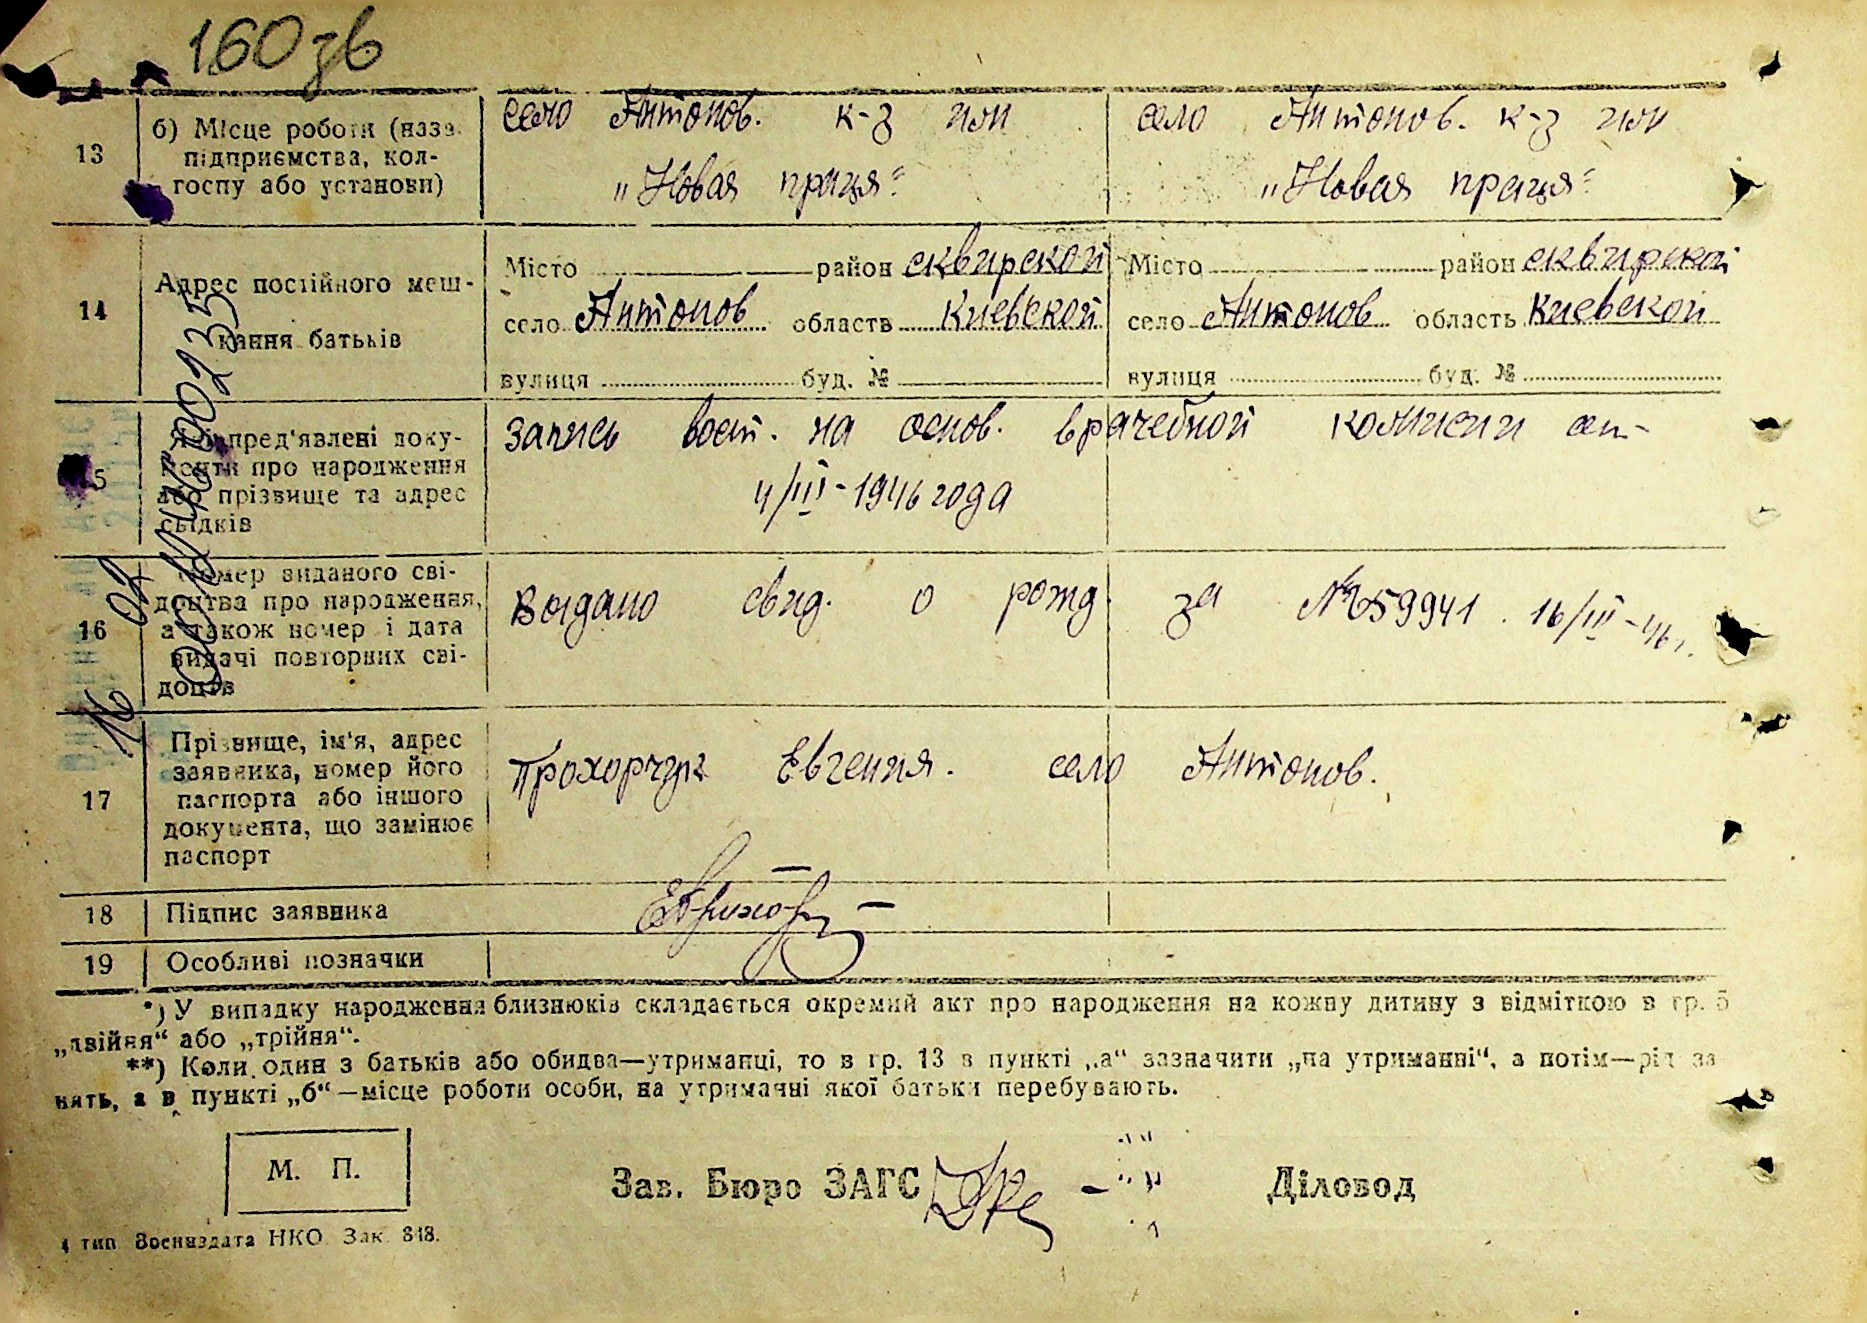 160 зв
13
б) Місце роботи (назв.
підприємства, кол-
госпу або установи)
село Антонов. к-з
„Новая праця"
село Антонов. к-з
„Новая праця"
14
Адрес постійного меш-
кання батьків
Місто район сквирской
село Антонов область Киевской
вулиця буд. №
Місто район сквирской
село Антонов область Киевской
вулиця буд. №
15
Які пред'явлені доку-
менти про народження
або прізвище та адрес
свідків
запись вост. на основ. врачебной комисии от-
4/III-1946 года
16
Номер виданого сві-
доцтва про народження,
а також номер і дата
видачі повторних сві-
доцтв
Выдано свид. о рожд. за № 59941. 16/III-46 г.
17
Прізвище, ім'я, адрес
заявника, номер його
паспорта або іншого
документа, що замінює
паспорт
Прохорчук Евгения. село Антонов.
18 Підпис заявника
19 Особливі позначки
*) У випадку народження близнюків складається окремий акт про народження на кожну дитину з відміткою в гр. 5
„двійня“ або „трійня“.
**) Коли один з батьків або обидва—утриманці, то в гр. 13 в пункті „а“ зазначити „на утриманні“, а потім—рід за
нять, а в пункті „б“—місце роботи особи, на утриманні якої батьки перебувають.
М. П.
Зав. Бюро ЗАГС
Діловод
4 тип Воениздата НКО Зак. 848.